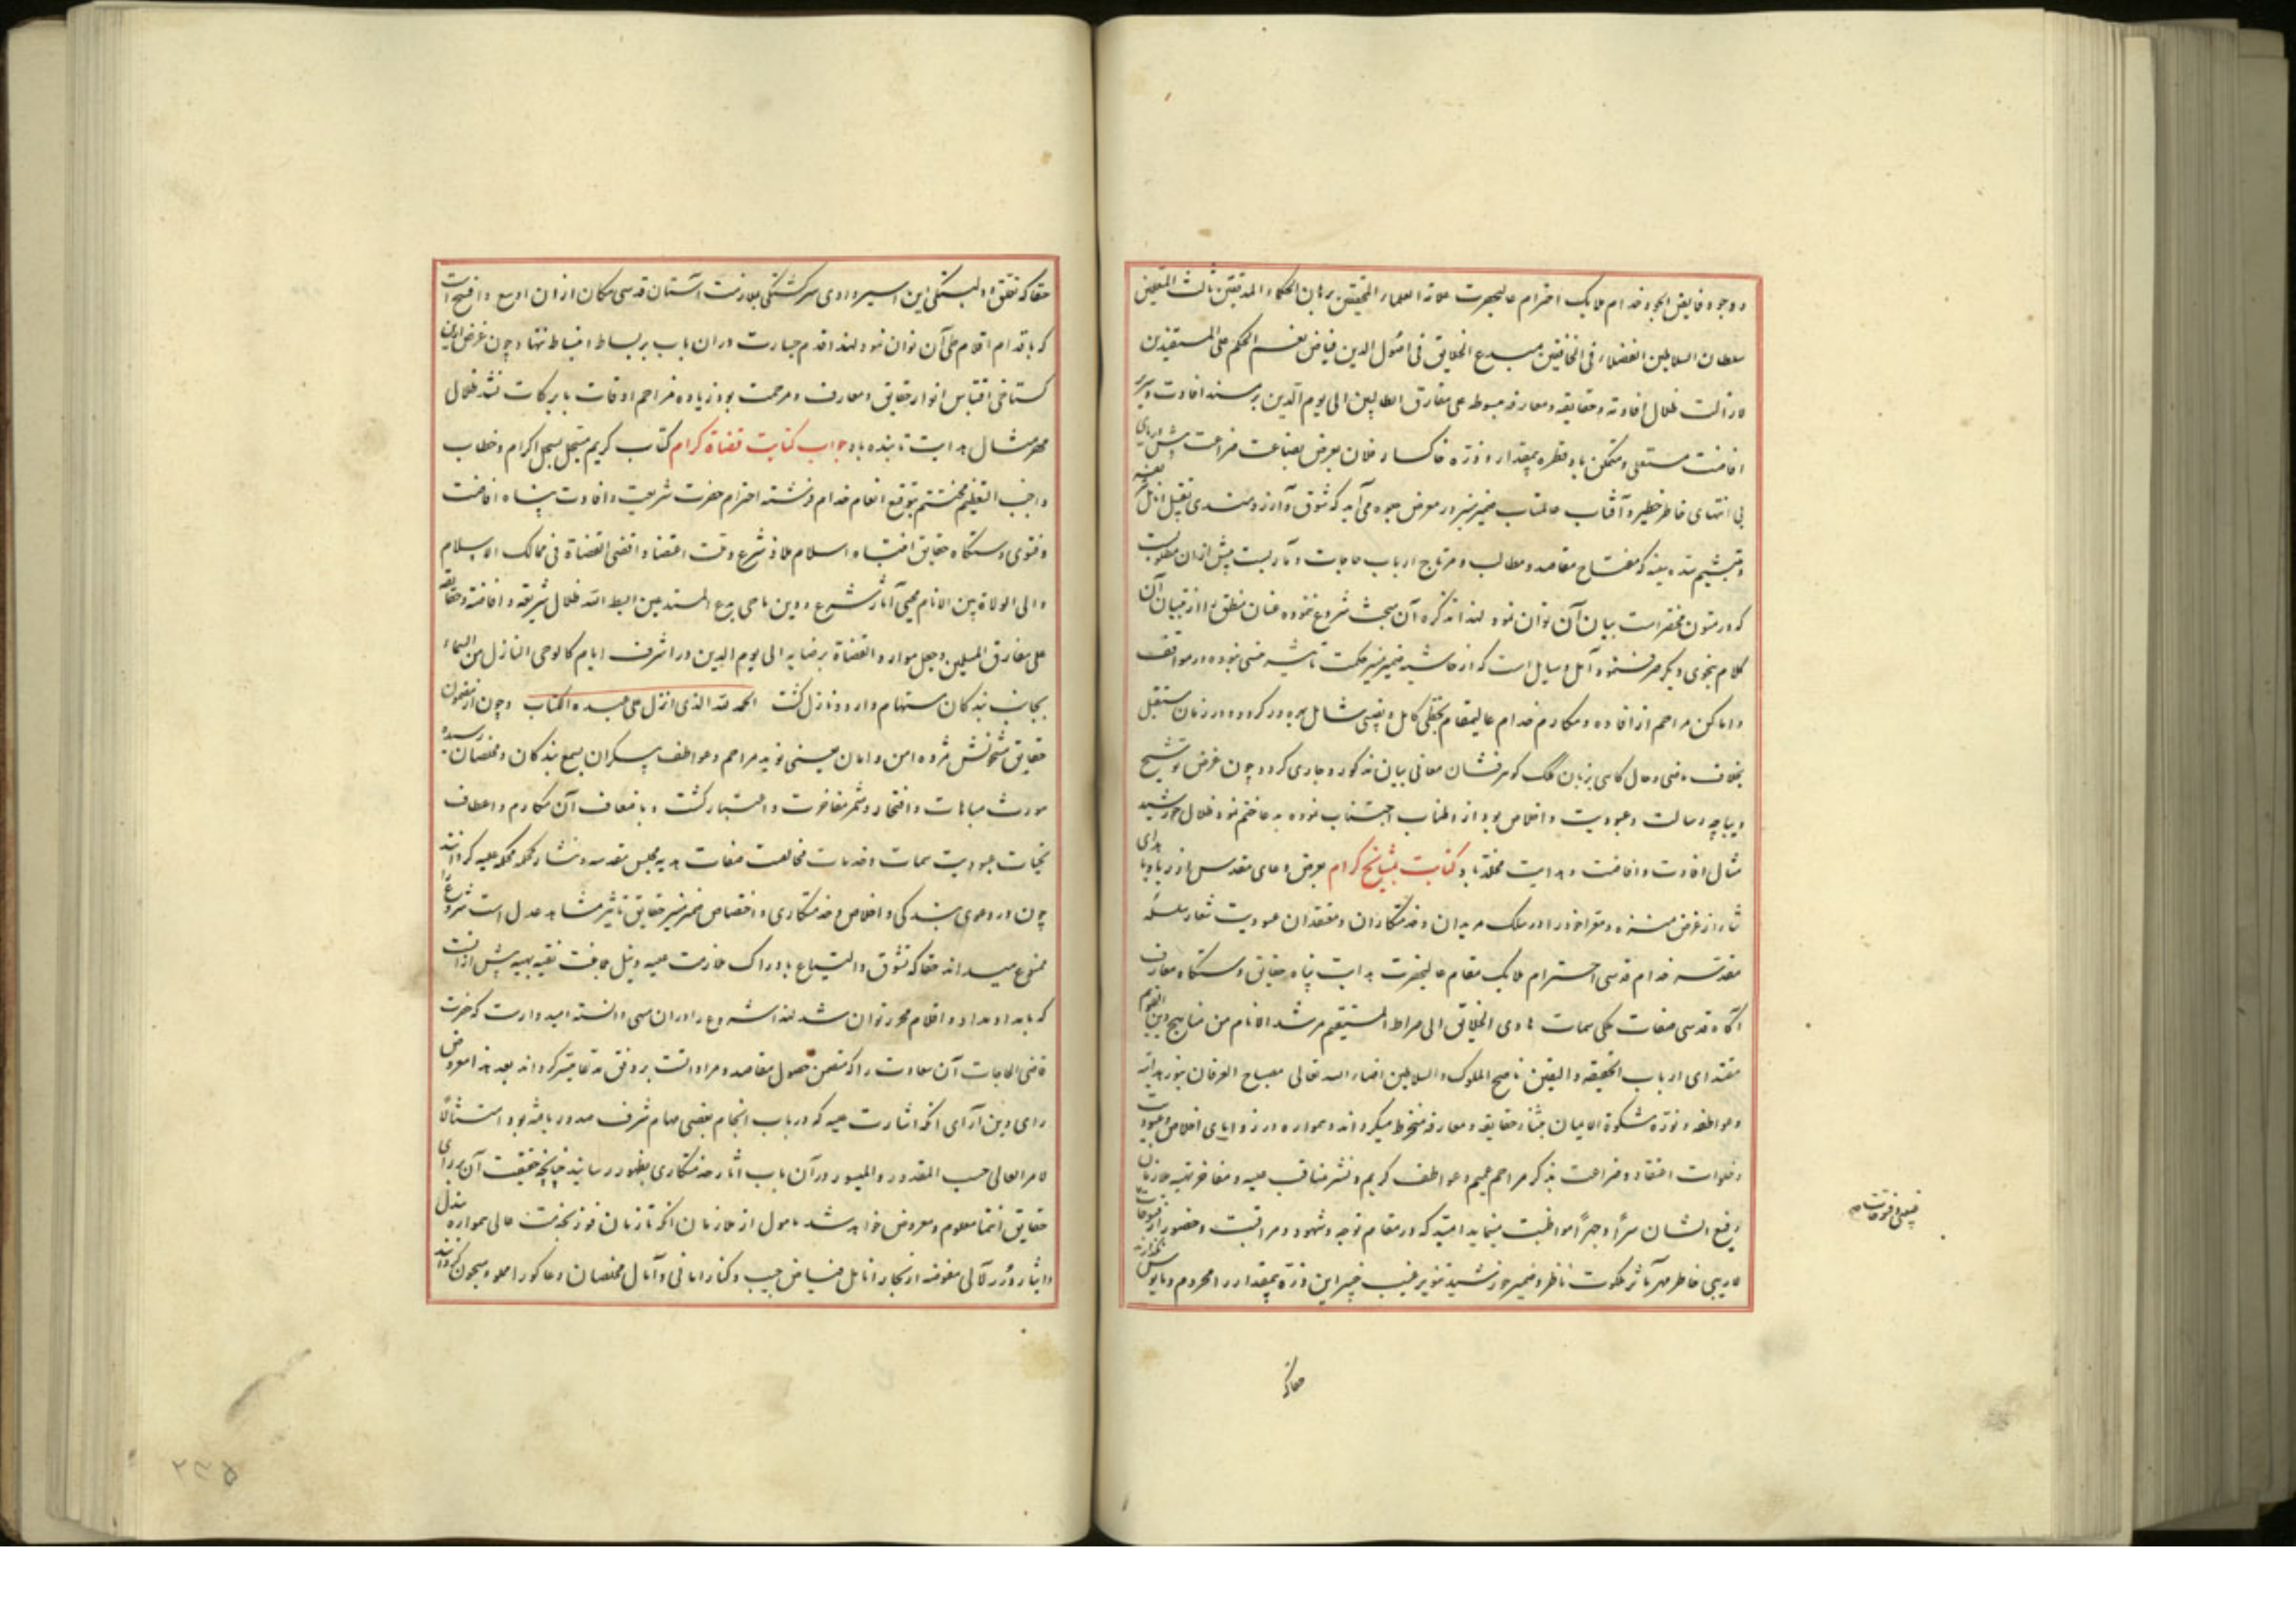 و وجود فایض الجود خدام ملایک احترام عالیحضرت علامة العلماء المحققین برهان الحکماء المدققین ثالث المعلمین
سلطان السلاطین الفضلاء فی الخافقین مبدع الحقایق فی اصول الدین فیاض نعم الحکم علی المستفیدین
لازالت ظلال افادته و حقایقه و معارفه مبسوطة علی مفارق الطالبین الی یوم الدین بر مسند افادت و سریر
افاضت مستعلی و متمکن باد قطره بیمقدار و ذره خاکسار فلان بعرض بضاعت ضراعت پیش دریای
بی انتهای خاطر خطیر و آفتاب عالمتاب ضمیر منیر در معرض جلوه می آید که شوق و آرزومندی بتقبیل انامل
که مفتاح مقاصد و مطالب و مرتاج ارباب حاجات و مآربست بیش از آن
که در متون مختصرات بیان آن توان نمود لهذا تذکره آن مبحث شروع ننموده عنان منطق را از تبیان آن
کلام بنحوی دیگر صرف نموده آمل و سایل است که از حاشیه ضمیر منیر حکمت تأثیر منسی نبوده در مواقف
و اماکن مراحم از افاده و مکارم خدام عالیمقام بحظی کامل و نصیبی شامل بهره ور کردد و در زمان مستقبل
بخلاف ماضی و حال کاهی بزبان کلک کوهرفشان معانی بیان مذکور و جاری کردد چون غرض توشیح
دیباچه رسالت و عبودیت و اخلاص بود از اطناب اجتناب نموده بدعا ختم نمود ظلال خورشید
مثال افادت و افاضت و هدایت مخلد باد کتابت بمشایخ کرام بعرض دعای مقدس از ریا و با
ثنا از غرض منزه و مقرا خود را در سلک مریدان و خدمتکاران و معتقدان عبودیت شعار سلسله
مقدسه خدام قدسی احترام ملایک مقام عالیحضرت هدایت پناه حقایق دستکاه معارف
آکاه قدسی صفات ملکی سمات هادی الخلایق الی صراط المستقیم مرشد الانام من مناهج دین القویم
مقتدای ارباب الحقیقه و الیقین ناصح الملوک و السلاطین اضاء الله تعالی مصباح العرفان بنور هدایته
و عواطفه و نوره مشکوة الایمان حقایقه و معارفه منخرط میکرداند و همواره در زوایای اخلاص و عبودیت
و خلوات اعتقاد و ضراعت بذکر مراحم عمیم و عواطف کریم و نشر مناقب علیه و مفاخر سنیه ملازمان
رفیع الشان سرا و جهرا مواظبت مینماید امید که در مقام توجه و شهود و مراقبت و حضور
لاریبی خاطر مهر مآثر ملکوت ناظر و ضمیر خورشید تنویر غیب خبیر این ذره بیمقدار را محروم و مأیوس
حقا که
حقا که تعلق و دلبستکی این اسیر وادی سرکشتکی بملازمت آستان قدسی مکان از آن اوسع و افسح است
که باقدام اقلام طی آن توان نمود لهذا قدم جسارت در آن باب بر بساط انبساط ننهاد چون غرض ازین
کستاخی اقتباس انوار حقایق و معارف و مرحمت بود زیاده مزاحم اوقات بابرکات نشد ظلال
مهر مثال هدایت تابنده باد جواب کتابت قضاة کرام کتاب کریم مسجل بسجل اکرام و خطاب
واجب التعظیم مختتم بتوقیع انعام خدام فرشته احترام حضرت شریعت و افادت پناه افاضت
و فتوی دستکاه حقایق انتباه اسلام ملاذ شرع و قت اقتضا و اقضی القضاة فی ممالک الاسلام
والی الولاة بین الانام محیی آثار شرع و دین ماحی بدع المبتدعین ابسط الله ظلال شریعته و افاضته و حقایقه
علی مفارق المسلمین و جعل موارد القضاة برضایه الی یوم الدین در اشرف ایام کالوحی النازل من السماء
بجانب بندکان مستهام وارد و نازل کشت الحمد لله الذی انزل علی عبده الکتاب و چون از مضمون
حقایق مشحونش مژده امن و امان یعنی نوید مراحم و عواطف بیکران بسمع بندکان و مخلصان رسیده
مورث مباهات و افتخار و مثمر مفاخرت و استبشار کشت و باضعاف آن مکارم و اعطاف
تحیات عبودیت سمات و خدمات مخالصت صفات هدیه مجلس مقدسه و نثار محکمه علیه کردانید
چون در دعوی بندکی و اخلاص و خدمتکاری و اختصاص ضمیر منیر حقایق تأثیر مشاهد عدل است شروع را
ممنوع میداند حقا که تشوق و التیاع بادراک ملازمت علیه و نیل مجالست بهیه بیش از آنست
که بامداد مداد و اقلام محرر توان شد لهذا شروع را در آن منسی دانسته امیدوارست که حضرت
قاضی الحاجات آن سعادت را که متضمن حصول مقاصد و مراداتست بر وفق مدعا میسر کرداند بعد هذا معروض
رای دین آرای آنکه اشارت علیه که در باب انجام بعضی مهام شرف صدور یافته بود امتثالا
لامر العالی حسب المقدور و المیسور در آن باب آثار خدمتکاری بظهور رسانید چنانچه حقیقت آن برای
حقایق انتما معلوم و معروض خواهد شد مأمول از ملازمان آنکه تا زمان فوز بخدمت عالی همواره ببذل
و ایثار درر لآلی مفوضه از بحار انامل فیاض جیب و کنار امانی و آمال مخلصان دعاکو را مملو و مشحون کردانند